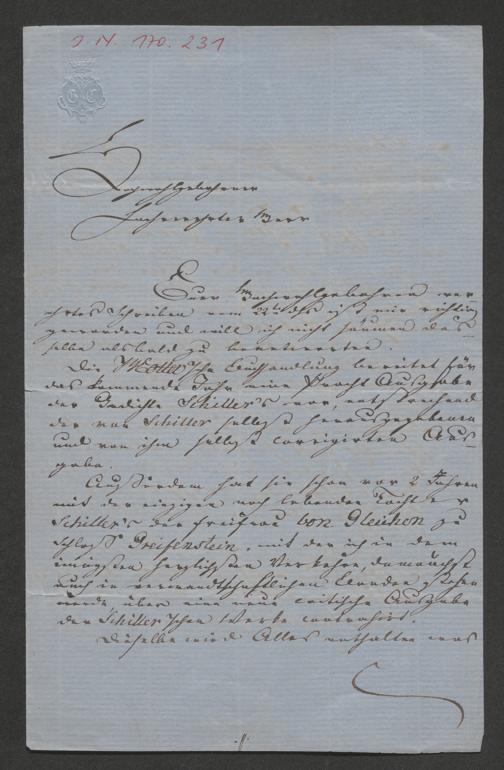 J. N. 170.231
Hochwohlgeborner
Hochverehrter Herr
Euer Hochwohlgeboren ver-
ehrtes Schreiben vom ist mir richtig
geworden und will ich nicht säumen das-
selbe alsbald zu beantworten.
Die J. G. Cotta'sche Buchhandlung bereitet für
das kommende Jahr eine Pracht Ausgabe
der Gedichte Schiller's vor, entsprechend
der von Schiller selbst herausgegebenen
und von ihm selbst corrigirten Aus-
gabe.
Außerdem hat sie schon vor 2 Jahren
mit der einzigen noch lebenden Tochter
Schiller's der Freifrau von Gleichen zu
Schloß Greifenstein, mit der ich in dem
innigsten herzlichsten Verkehre, demnächst
auch in verwandtschaftlichen Banden stehen
werde, über eine neue critische Ausgabe
der Schiller'schen Werke contrahirt.
Dieselbe wird Alles enthalten was